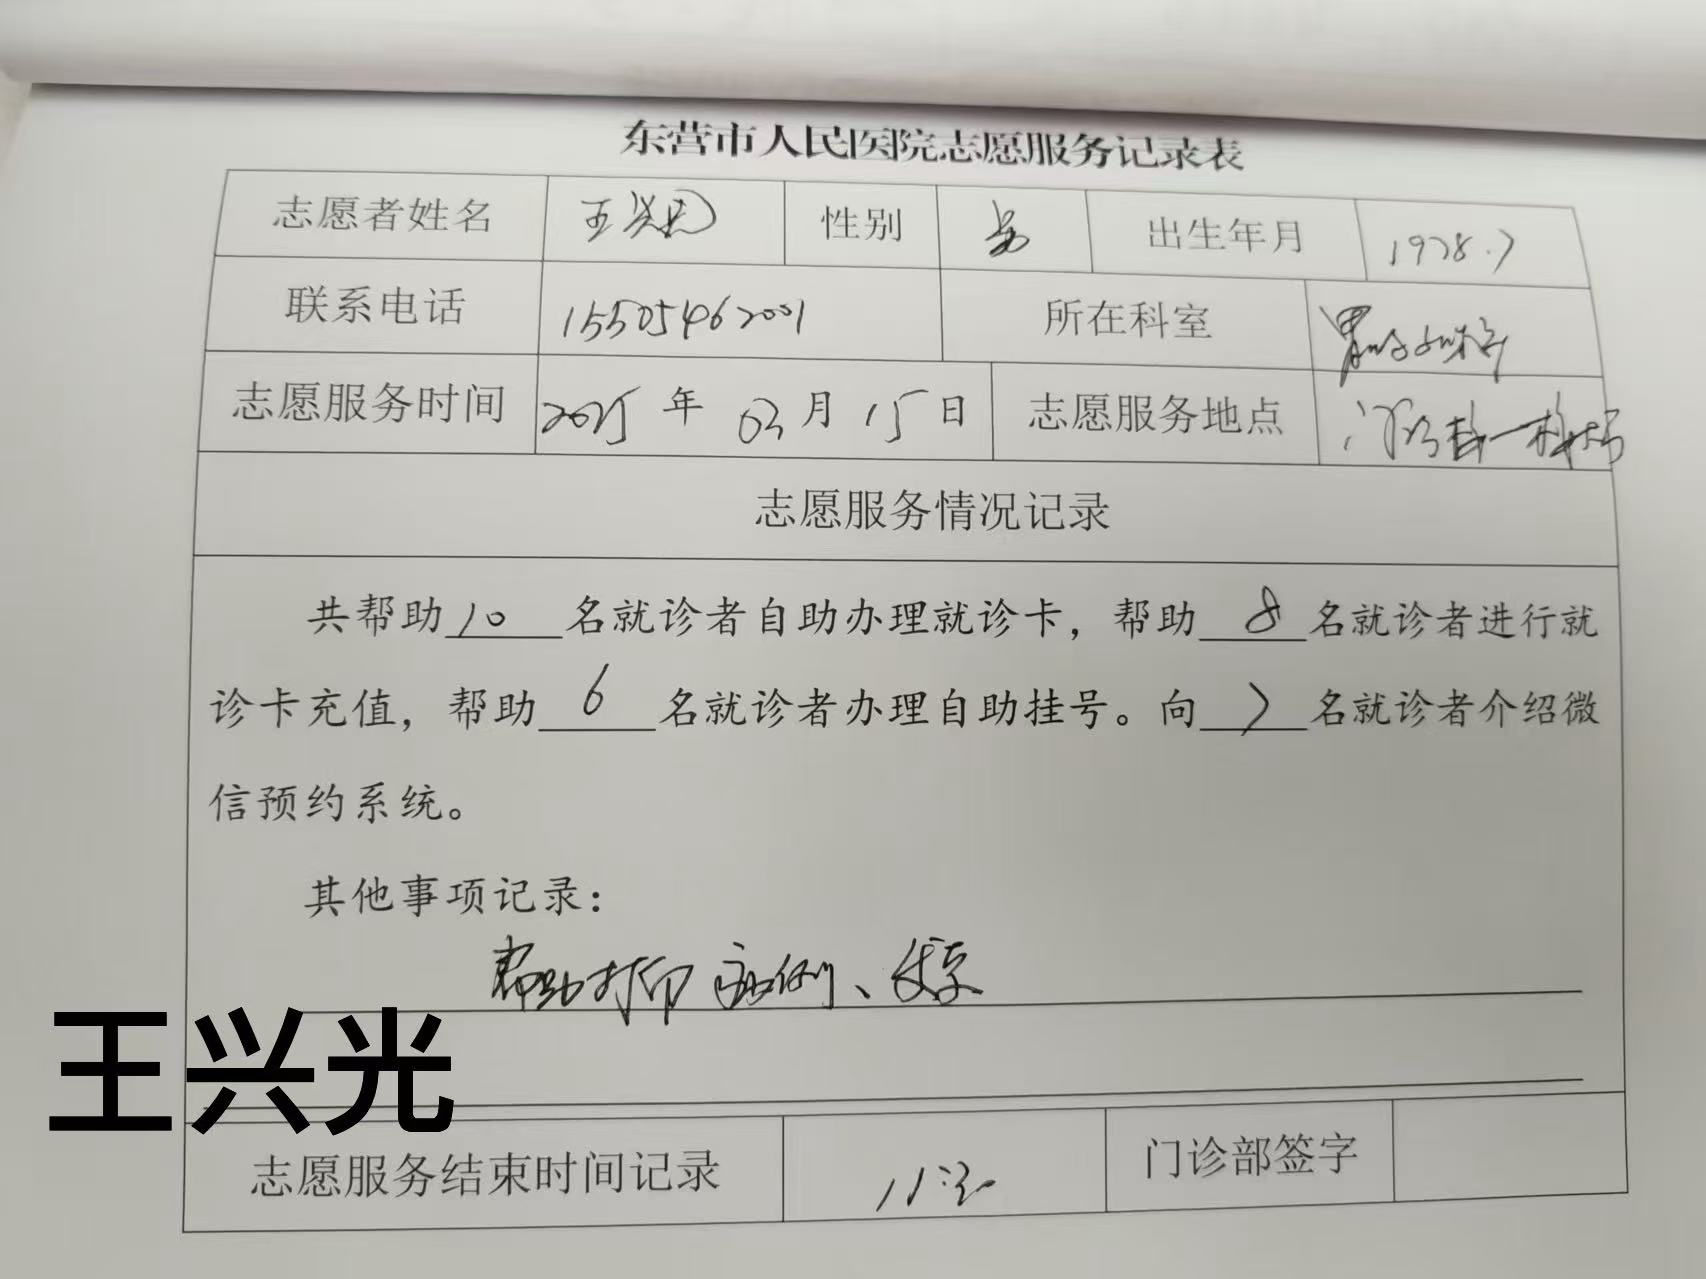 东营市人民医院志愿服务记录表
志愿者姓名 王兴光 性别 男 出生年月 1978.7
联系电话 15505462001 所在科室 胃肠外科
志愿服务时间 2025年03月15日 志愿服务地点 门诊楼一楼大厅
志愿服务情况记录
共帮助10名就诊者自助办理就诊卡，帮助8名就诊者进行就
诊卡充值，帮助6名就诊者办理自助挂号。向7名就诊者介绍微
信预约系统。
其他事项记录：
帮助打印病例、发票
王兴光
志愿服务结束时间记录 11:30 门诊部签字